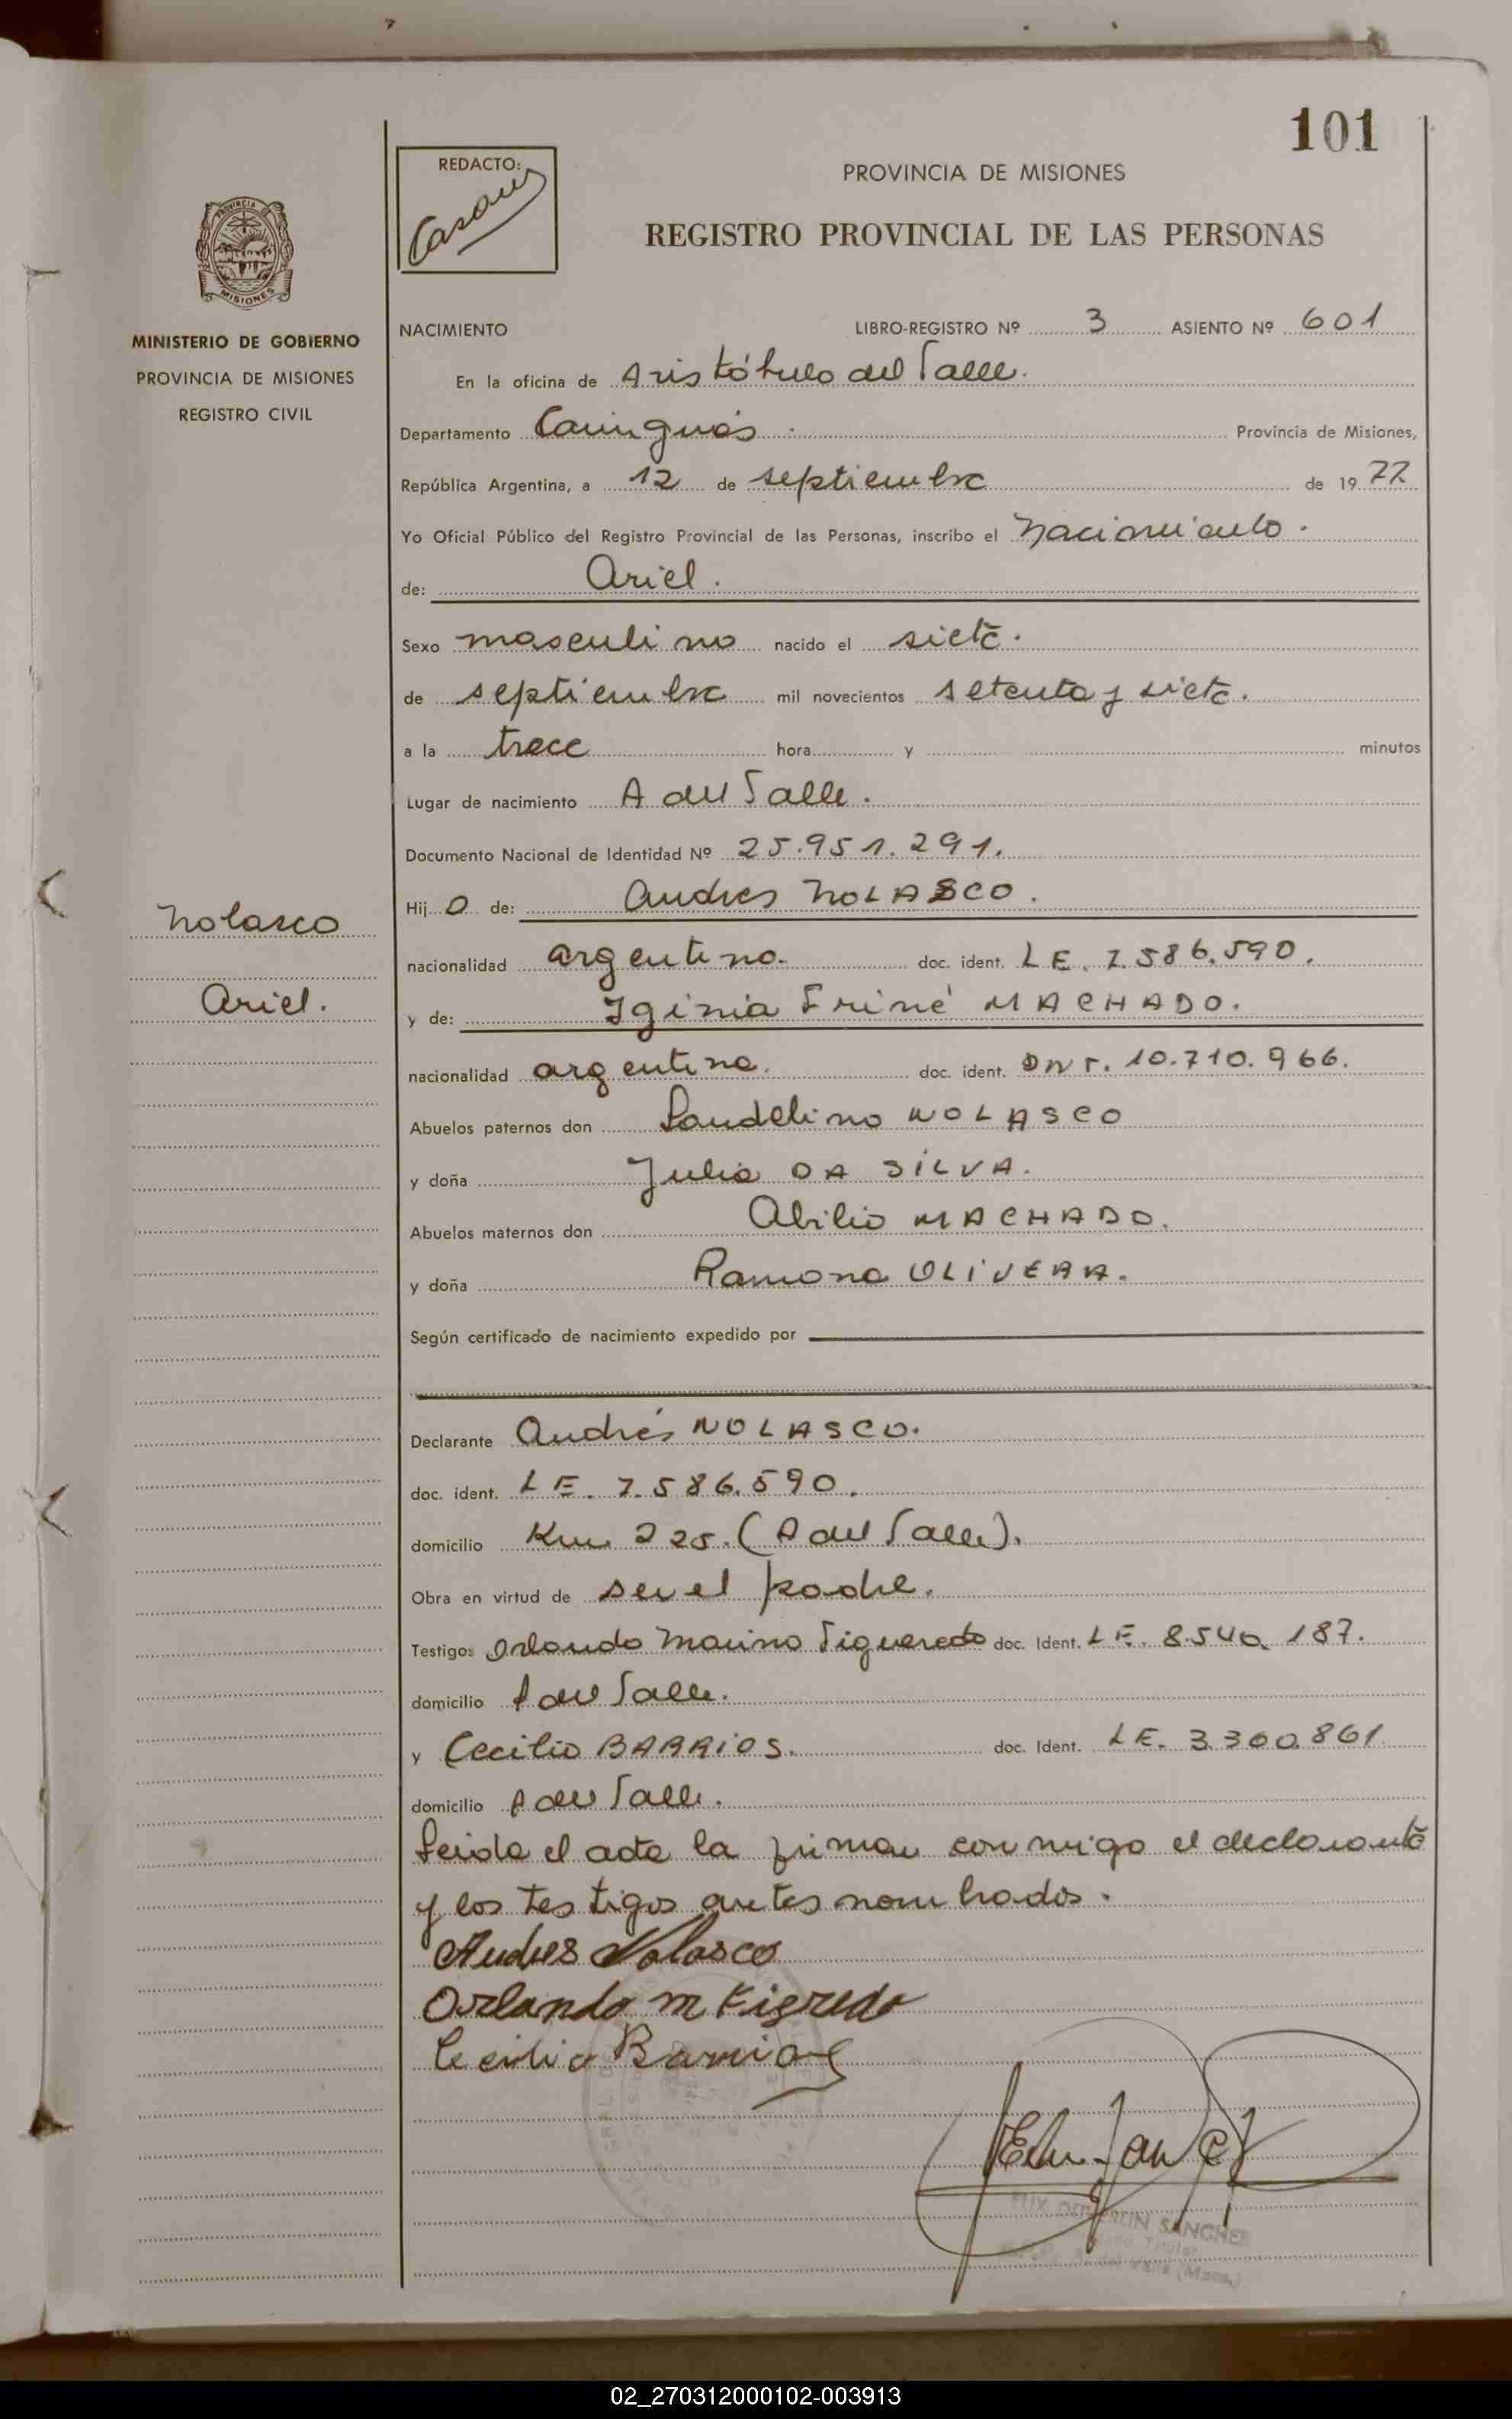 101
REDACTO:
PROVINCIA DE MISIONES
REGISTRO PROVINCIAL DE LAS PERSONAS
PROVINCIA DE
MISIONES
MINISTERIO DE GOBIERNO
PROVINCIA DE MISIONES
REGISTRO CIVIL
NACIMIENTO LIBRO-REGISTRO Nº 3 ASIENTO Nº 601
En la oficina de Aristóbulo del Valle.
Departamento Cainguás Provincia de Misiones,
República Argentina, a 12 de septiembre de 19 77
Yo Oficial Público del Registro Provincial de las Personas, inscribo el Nacimiento.
de: Ariel.
Sexo masculino nacido el siete.
de septiembre mil novecientos setenta y siete.
a la trece hora y minutos
Lugar de nacimiento A del Valle.
Documento Nacional de Identidad Nº 25.951.291.
Nolasco
Hij o de: Andres NOLASCO.
nacionalidad argentino. doc. ident. LE. 7.586.590.
Ariel.
y de: Iginia Friné MACHADO.
nacionalidad argentina. doc. ident. DNI. 10.710.966.
Abuelos paternos don Laudelino NOLASCO
y doña Julia DA SILVA.
Abuelos maternos don Abilio MACHADO.
y doña Ramona OLIVERA.
Según certificado de nacimiento expedido por
Declarante Andrés NOLASCO.
doc. ident. LE. 7.586.590.
domicilio Km 225. (A del Valle).
Obra en virtud de ser el padre.
Testigos Orlando Marino Figueredo doc. Ident. LE. 8.540.187.
domicilio A del Valle.
y Cecilio BARRIOS. doc. Ident. LE. 3.300.861
domicilio A del Valle.
Leida el acta la firman conmigo el declarante
y los testigos antes nombrados.
Andres Nolasco
Orlando M Figredo
Cecilio Barrios
SANCHEZ
Titular
02_270312000102-003913